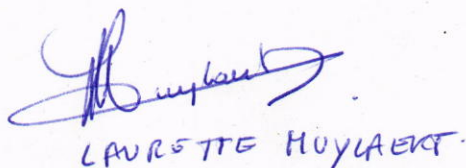 LAURETTE MUYLAERT.